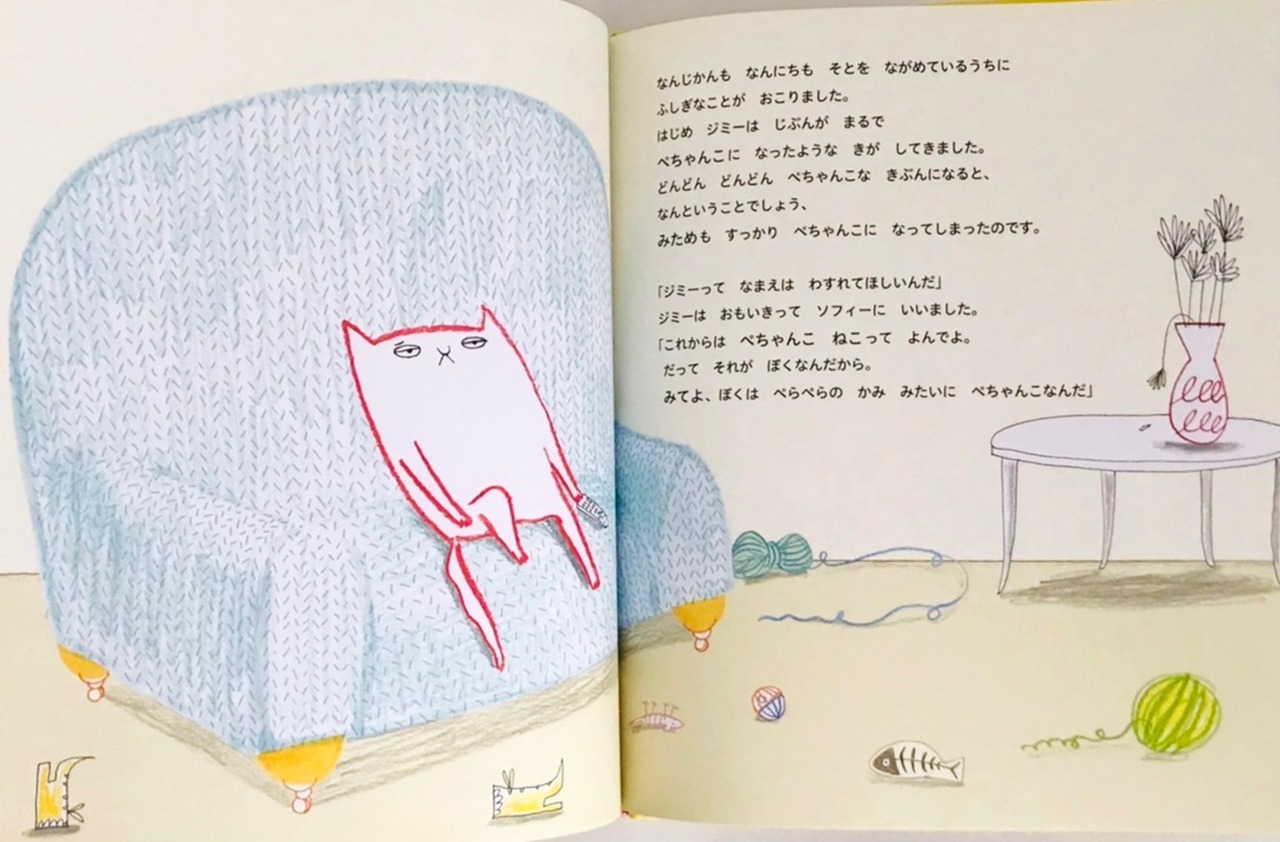 なんじかんも　なんにちも　そとを　ながめているうちに
ふしぎなことが　おこりました。
はじめ　ジミーは　じぶんが　まるで
ぺちゃんこに　なったような　きが　してきました。
どんどん　どんどん　ぺちゃんこな　きぶんになると、
なんということでしょう、
みためも　すっかり　ぺちゃんこに　なってしまったのです。
「ジミーって　なまえは　わすれてほしいんだ」
ジミーは　おもいきって　ソフィーに　いいました。
「これからは　ぺちゃんこ　ねこって　よんでよ。
だって　それが　ぼくなんだから。
みてよ、ぼくは　ぺらぺらの　かみ　みたいに　ぺちゃんこなんだ」